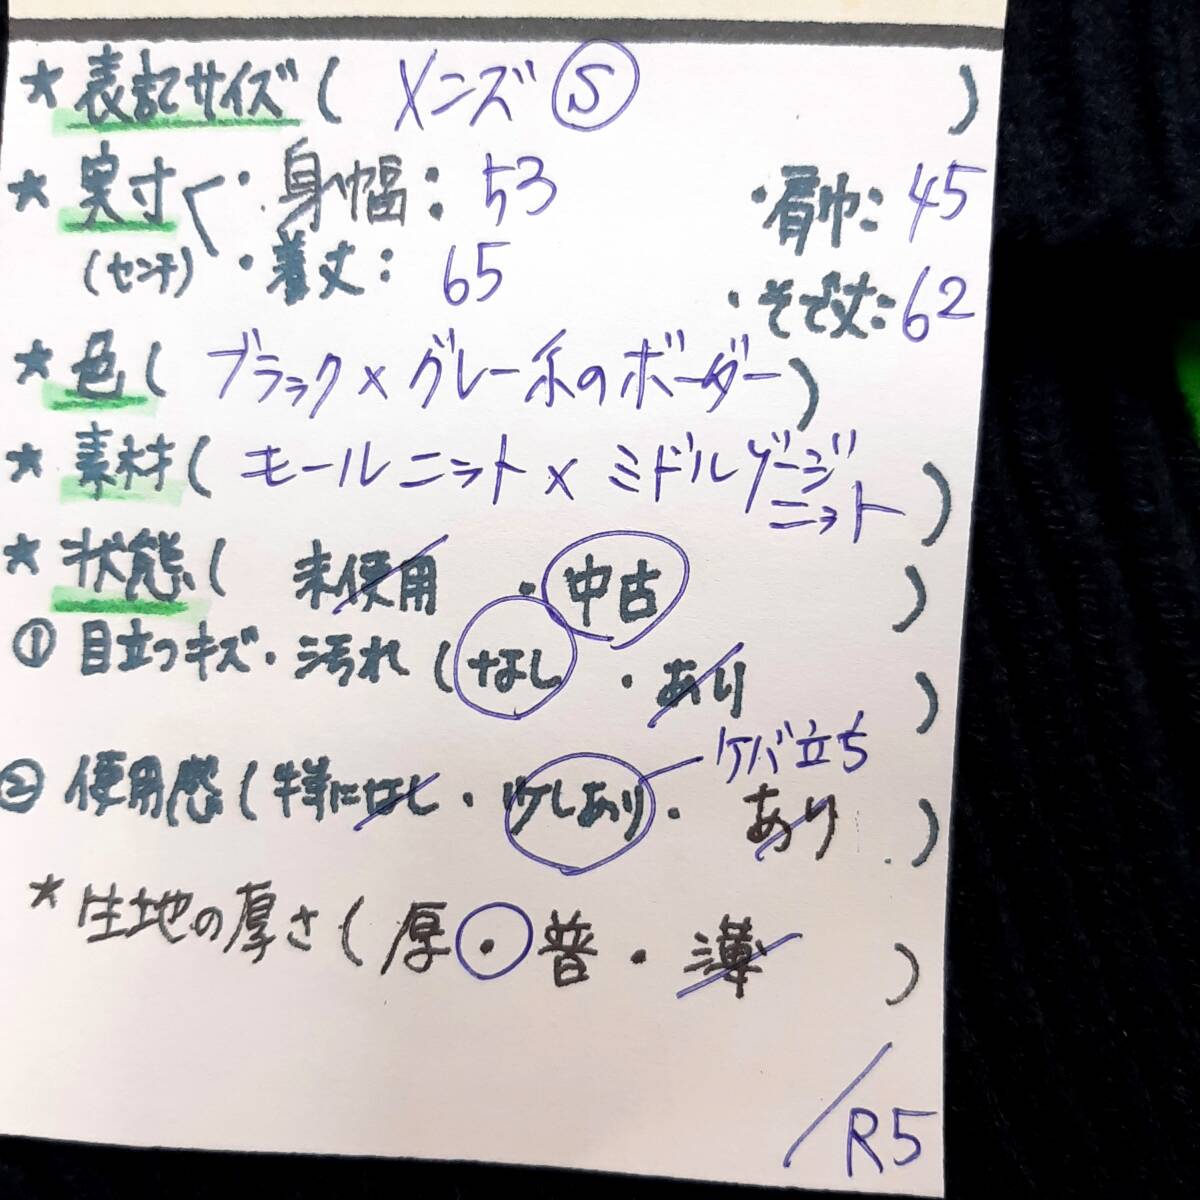 ★ 表記サイズ( メンズ Ⓢ )
★ 実寸く ・身幅: 53 ・肩巾: 45
(センチ) ・着丈: 65 ・そで丈: 62
★ 色( ブラック×グレー系のボーダー)
★ 素材( モールニット×ミドルゲージ
ニット )
★ 状態( 未使用 ・ 中古 )
① 目立つキズ・汚れ ( なし ・ あり )
ケバ立ち
② 使用感 ( 特になし ・ 少しあり ・ あり )
★ 生地の厚さ( 厚 ・ 普 ・ 薄 )
/R5